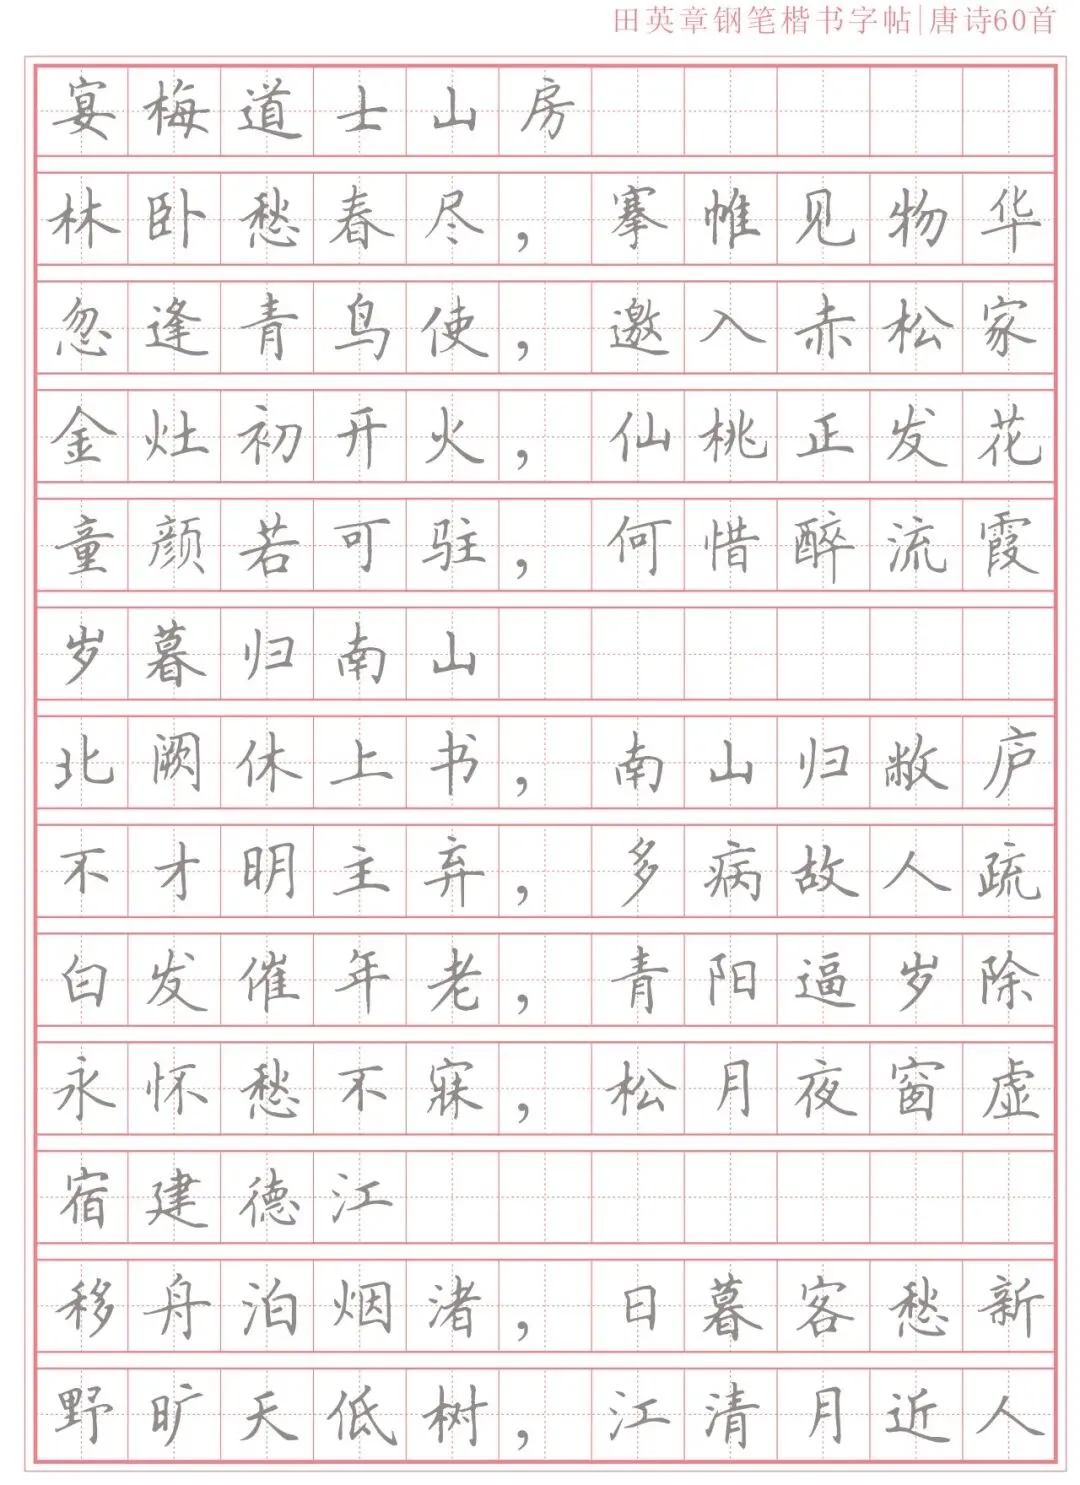 田英章钢笔楷书字帖|唐诗60首
宴梅道士山房
林卧愁春尽，搴帷见物华
忽逢青鸟使，邀入赤松家
金灶初开火，仙桃正发花
童颜若可驻，何惜醉流霞
岁暮归南山
北阙休上书，南山归敝庐
不才明主弃，多病故人疏
白发催年老，青阳逼岁除
永怀愁不寐，松月夜窗虚
宿建德江
移舟泊烟渚，日暮客愁新
野旷天低树，江清月近人